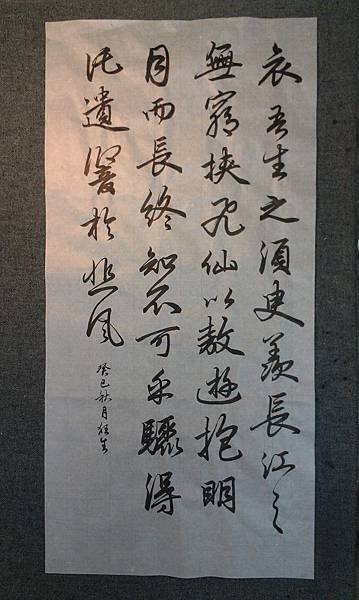 哀吾生之須臾羨長江之
無窮挾飛仙以遨遊抱明
月而長終知不可乎驟得
託遺響於悲風
癸巳秋月生